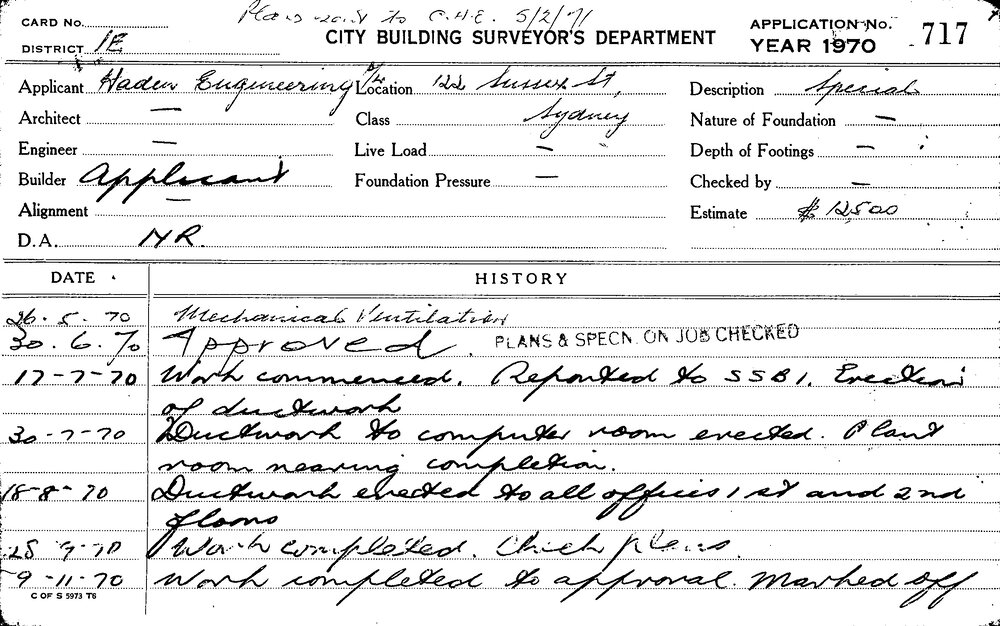 Plans sent to C.H.E. 5/2/71
CARD No.
CITY BUILDING SURVEYOR'S DEPARTMENT
APPLICATION No. 717
DISTRICT 1E
YEAR 1970
Applicant Haden Engineering P/L Location 122 Sussex St, Description Special
Architect — Class Sydney Nature of Foundation —
Engineer — Live Load — Depth of Footings —
Builder Applicant Foundation Pressure — Checked by —
Alignment — Estimate $ 12500
D.A. NR.
DATE HISTORY
26.5.70 Mechanical Ventilation
30.6.70 Approved. PLANS & SPECN. ON JOB CHECKED
17-7-70 Work commenced. Reported to SSB1. Erection
of ductwork
30-7-70 Ductwork to computer room erected. Plant
room nearing completion.
18-8-70 Ductwork erected to all offices 1st and 2nd
floors
28 9-70 Work completed. Check plans.
9-11-70 Work completed to approval. Marked off
C OF S 5973 T6